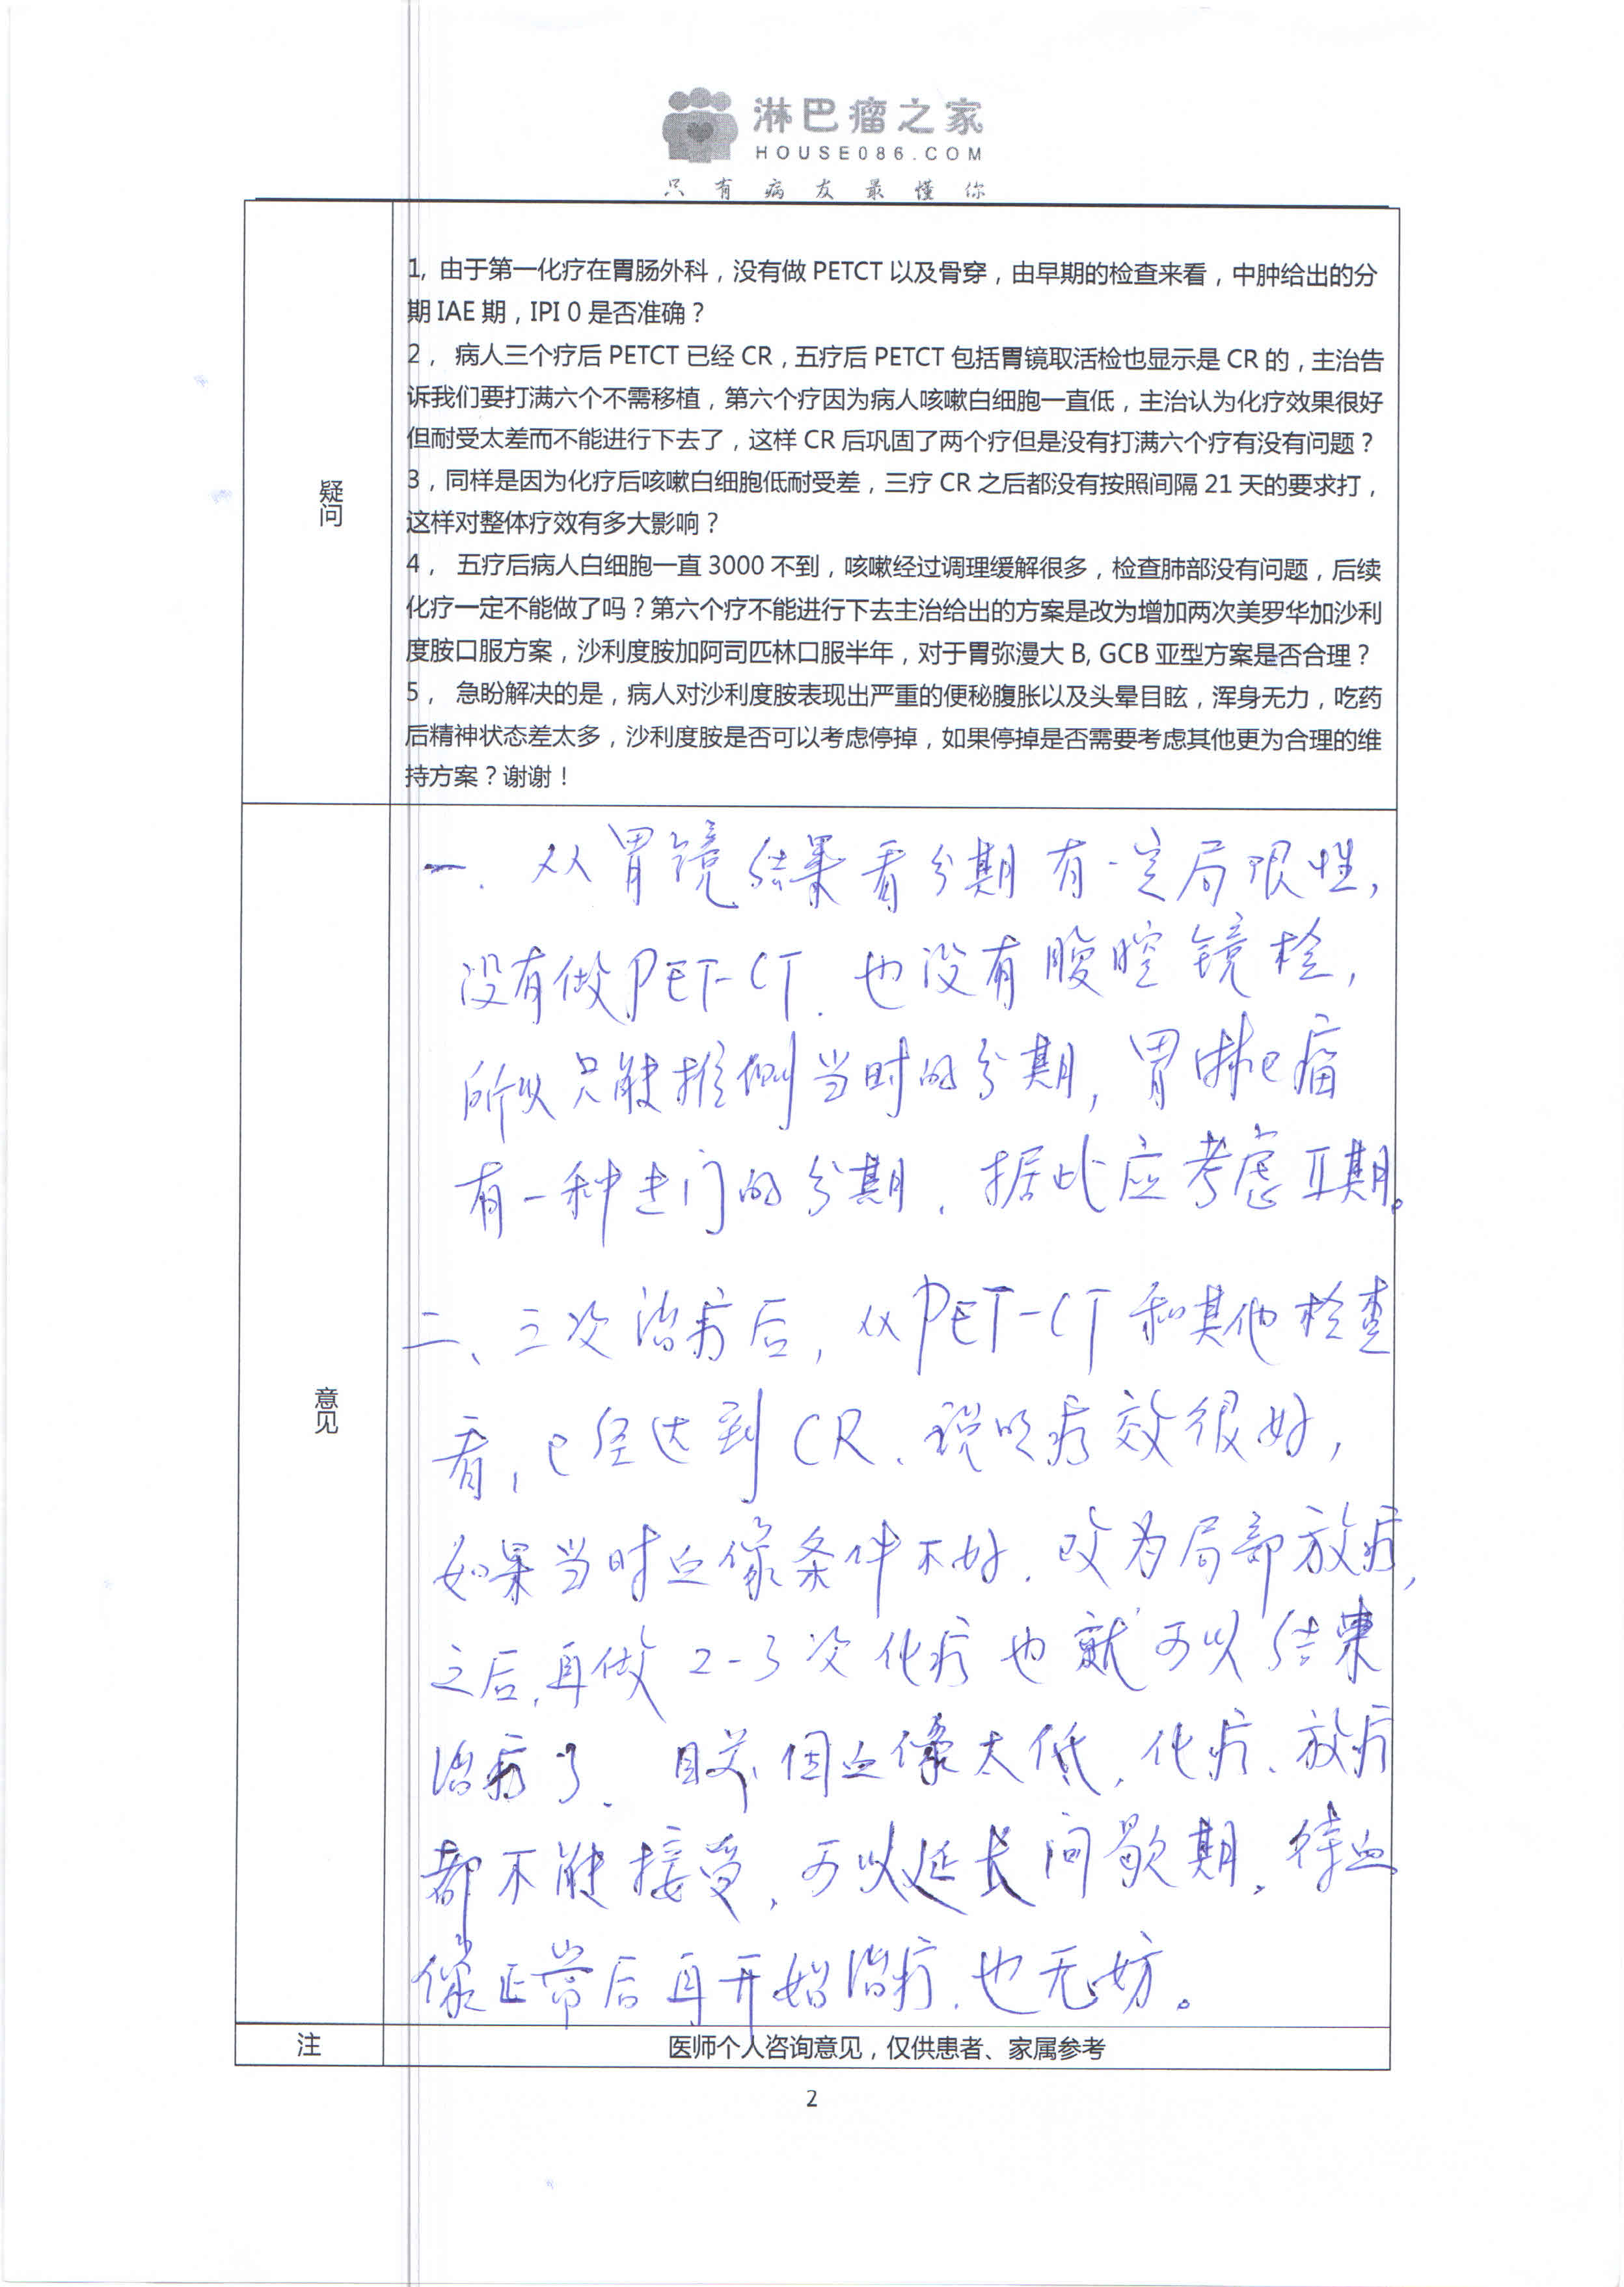 淋巴瘤之家
HOUSE086.COM
只有病友最懂你
疑问
1, 由于第一化疗在胃肠外科，没有做 PETCT 以及骨穿，由早期的检查来看，中肿给出的分
期 IAE 期，IPI 0 是否准确？
2， 病人三个疗后 PETCT 已经 CR，五疗后 PETCT 包括胃镜取活检也显示是 CR 的，主治告
诉我们要打满六个不需移植，第六个疗因为病人咳嗽白细胞一直低，主治认为化疗效果很好
但耐受太差而不能进行下去了，这样 CR 后巩固了两个疗但是没有打满六个疗有没有问题？
3，同样是因为化疗后咳嗽白细胞低耐受差，三疗 CR 之后都没有按照间隔 21 天的要求打，
这样对整体疗效有多大影响？
4， 五疗后病人白细胞一直 3000 不到，咳嗽经过调理缓解很多，检查肺部没有问题，后续
化疗一定不能做了吗？第六个疗不能进行下去主治给出的方案是改为增加两次美罗华加沙利
度胺口服方案，沙利度胺加阿司匹林口服半年，对于胃弥漫大 B, GCB 亚型方案是否合理？
5， 急盼解决的是，病人对沙利度胺表现出严重的便秘腹胀以及头晕目眩，浑身无力，吃药
后精神状态差太多，沙利度胺是否可以考虑停掉，如果停掉是否需要考虑其他更为合理的维
持方案？谢谢！
意见
一. 从胃镜结果看分期有一定局限性，
没有做PET-CT. 也没有腹腔镜检，
所以只能推侧当时的分期，胃淋巴瘤
有一种专门的分期. 据此应考虑Ⅱ期。
二、三次治疗后，从PET-CT和其他检查
看，已经达到CR、说明疗效很好，
如果当时血像条件不好. 改为局部放疗，
之后，再做2-3次化疗也就可以结束
治疗了. 目前因血像太低，化疗、放疗
都不能接受，可以延长间歇期，待血
像正常后再开始治疗，也无妨。
注
医师个人咨询意见，仅供患者、家属参考
2